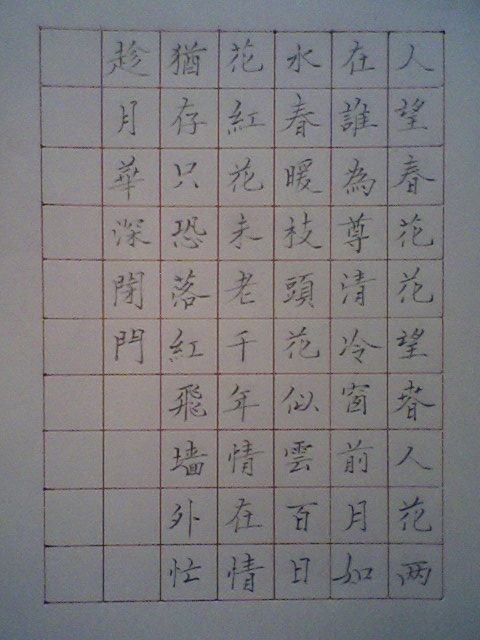 人望春花花望春人花两
在誰為尊清冷窗前月如
水春暖枝頭花似雲百日
花紅花未老千年情在情
猶存只恐落紅飛墙外忙
趁月華深閉門